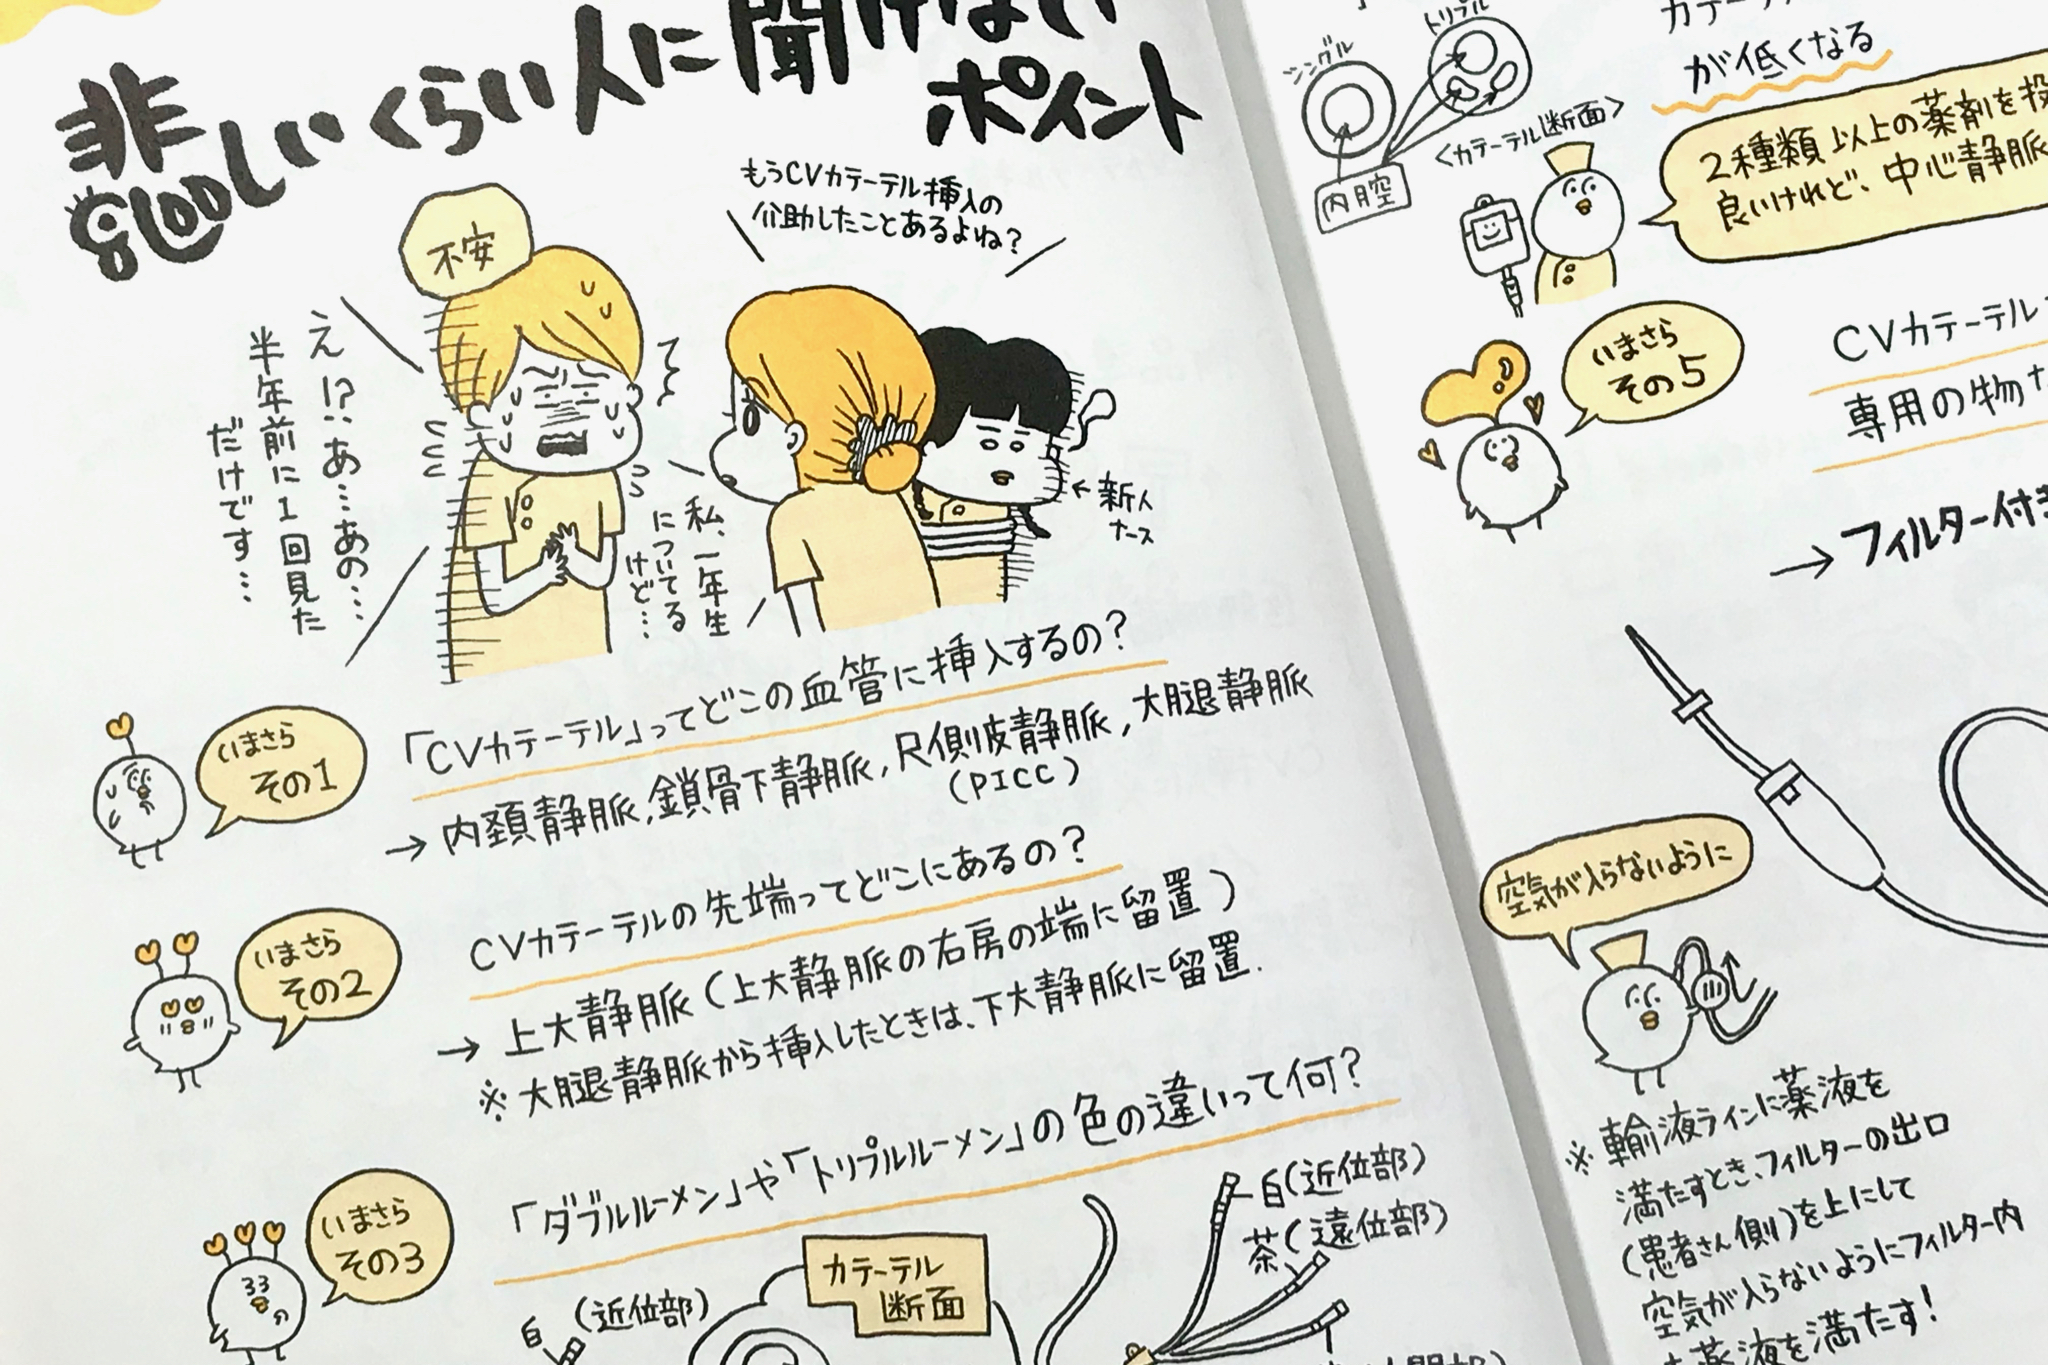 悲しいくらい人に聞けない
ポイント
もうCVカテーテル挿入の
介助したことあるよね?
不安
え!?あ…あの…
半年前に1回見た
だけです…
私、一年生
についてる
けど…
←新人
ナース
いまさら
その1
「CVカテーテル」ってどこの血管に挿入するの?
→内頚静脈,鎖骨下静脈,尺側皮静脈,大腿静脈
(PICC)
いまさら
その2
CVカテーテルの先端ってどこにあるの?
→上大静脈(上大静脈の右房の端に留置)
※大腿静脈から挿入したときは、下大静脈に留置.
いまさら
その3
「ダブルルーメン」や「トリプルルーメン」の色の違いって何?
白(近位部)
カテーテル
断面
白(近位部)
茶(遠位部)
シングル
トリプル
内腔
<カテーテル断面>
が低くなる
2種類以上の薬剤を投
良いけれど、中心静脈
いまさら
その5
CVカテーテル
専用の物
→フィルター付き
空気が入らないように
※輸液ラインに薬液を
満たすとき、フィルターの出口
(患者さん側)を上にして
空気が入らないようにフィルター内
薬液を満たす!